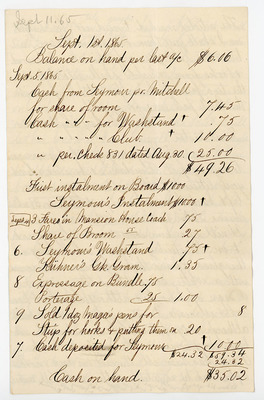 Sept 11. 65
Sept. 1st. 1865
Balance on hand per last a/c $6.06
Sept. 5. 1865
Cash from Seymour pr. Mitchell
for share of room 7.45
Cash " " for Washstand .75
" " " " Club 10.00
" per. Check 831 dated Aug 30. 25.00
$49.26
First instalment on Board $1000
Seymour's Instalment $1000
3 Fares in Mansion House Coach 75
Share of Broom 27
6. Seymour's Washstand 75
Gk. Gram. 1.35
8 Expressage on Bundle .75
Porterage 25 1.00
9 Sold pens for 8
Strip for hooks & putting them in 20
7. Cash deposited for Seymour 10.00
$24.32 $59.34
24.32
Cash on hand. $35.02